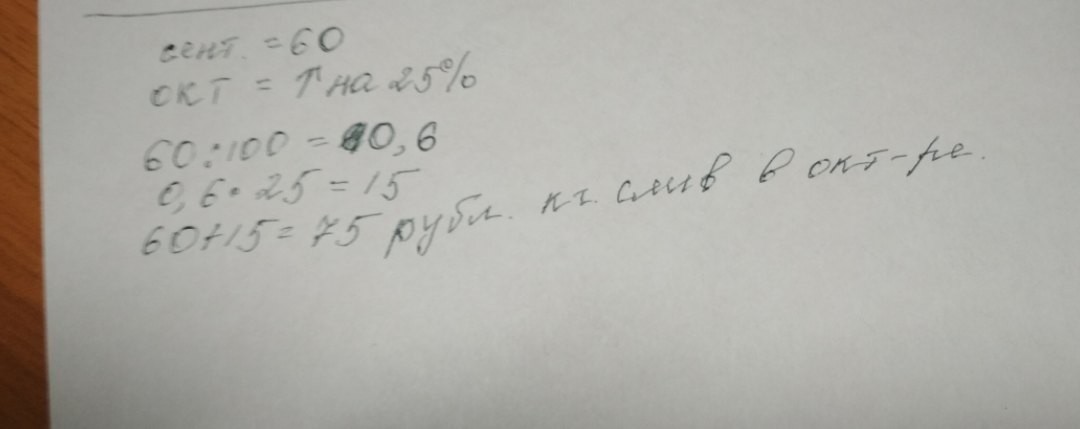 сент. = 60
окт = ↑ на 25%
60:100 = 0,6
0,6 · 25 = 15
60+15 = 75 рубл. кг. слив в окт-ре.